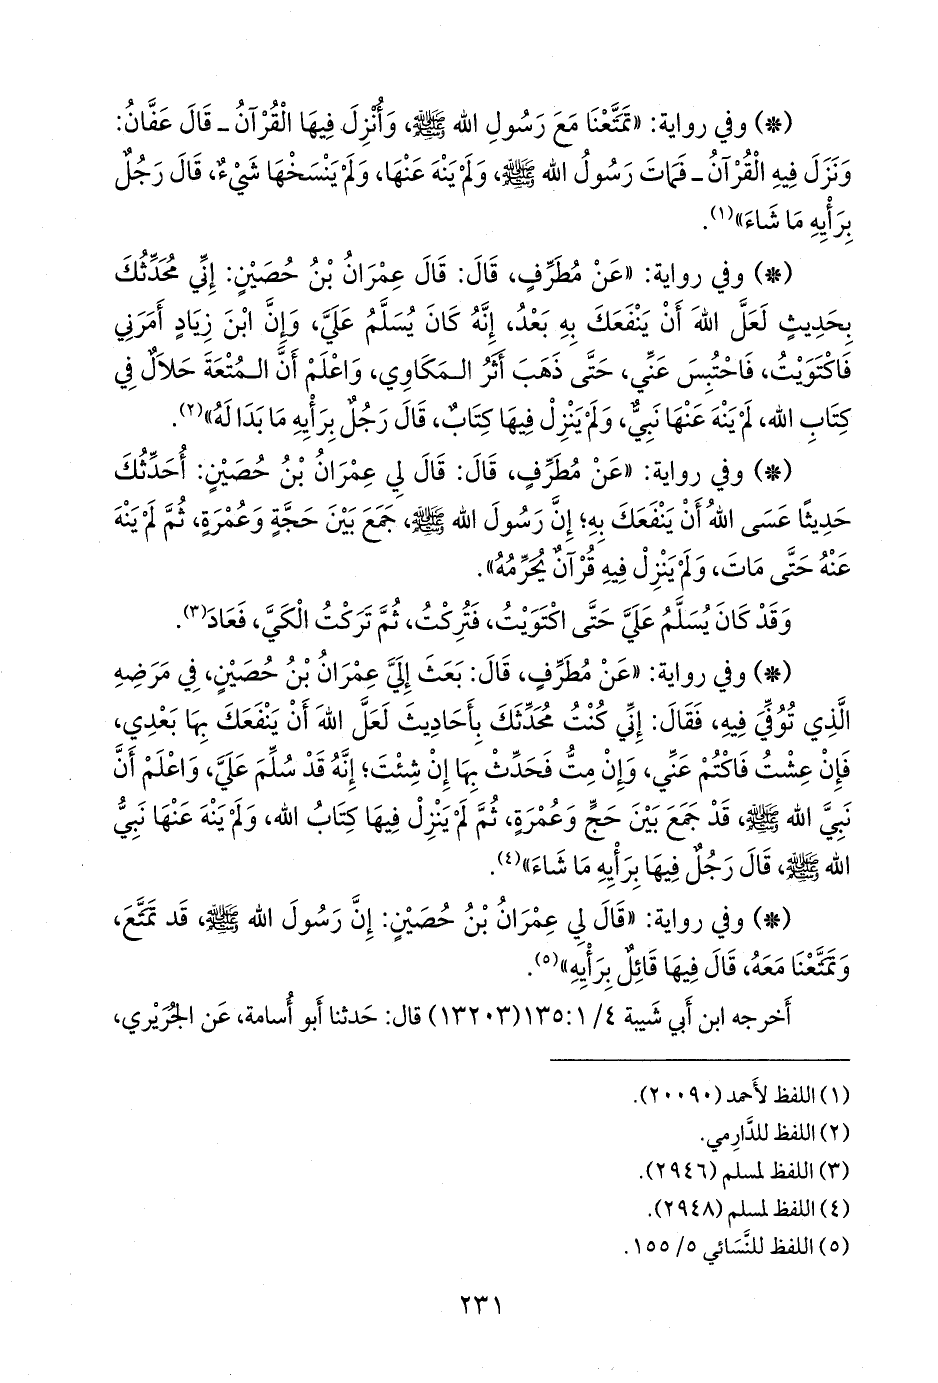 (*) وفي رواية: «تَمَتَّعْنَا مَعَ رَسُولِ الله ﷺ، وَأُنْزِلَ فِيهَا الْقُرْآنُ ـ قَالَ عَفَّانُ:
وَنَزَلَ فِيهِ الْقُرْآنُ ـ فَمَاتَ رَسُولُ الله ﷺ، وَلَمْ يَنْهَ عَنْهَا، وَلَمْ يَنْسَخْهَا شَيْءٌ، قَالَ رَجُلٌ
بِرَأْيِهِ مَا شَاءَ»(١).
(*) وفي رواية: «عَنْ مُطَرِّفٍ، قَالَ: قَالَ عِمْرَانُ بْنُ حُصَيْنٍ: إِنِّي مُحَدِّثُكَ
بِحَدِيثٍ لَعَلَّ اللهَ أَنْ يَنْفَعَكَ بِهِ بَعْدُ، إِنَّهُ كَانَ يُسَلَّمُ عَلَيَّ، وَإِنَّ ابْنَ زِيَادٍ أَمَرَنِي
فَاكْتَوَيْتُ، فَاحْتُبِسَ عَنِّي، حَتَّى ذَهَبَ أَثَرُ الـمَكَاوِي، وَاعْلَمْ أَنَّ الـمُتْعَةَ حَلَالٌ فِي
كِتَابِ الله، لَمْ يَنْهَ عَنْهَا نَبِيٌّ، وَلَمْ يَنْزِلْ فِيهَا كِتَابٌ، قَالَ رَجُلٌ بِرَأْيِهِ مَا بَدَا لَهُ»(٢).
(*) وفي رواية: «عَنْ مُطَرِّفٍ، قَالَ: قَالَ لِي عِمْرَانُ بْنُ حُصَيْنٍ: أُحَدِّثُكَ
حَدِيثًا عَسَى اللهُ أَنْ يَنْفَعَكَ بِهِ؛ إِنَّ رَسُولَ الله ﷺ، جَمَعَ بَيْنَ حَجَّةٍ وَعُمْرَةٍ، ثُمَّ لَمْ يَنْهَ
عَنْهُ حَتَّى مَاتَ، وَلَمْ يَنْزِلْ فِيهِ قُرْآنٌ يُحَرِّمُهُ».
وَقَدْ كَانَ يُسَلَّمُ عَلَيَّ حَتَّى اكْتَوَيْتُ، فَتُرِكْتُ، ثُمَّ تَرَكْتُ الْكَيَّ، فَعَادَ(٣).
(*) وفي رواية: «عَنْ مُطَرِّفٍ، قَالَ: بَعَثَ إِلَيَّ عِمْرَانُ بْنُ حُصَيْنٍ، فِي مَرَضِهِ
الَّذِي تُوُفِّيَ فِيهِ، فَقَالَ: إِنِّي كُنْتُ مُحَدِّثَكَ بِأَحَادِيثَ لَعَلَّ اللهَ أَنْ يَنْفَعَكَ بِهَا بَعْدِي،
فَإِنْ عِشْتُ فَاكْتُمْ عَنِّي، وَإِنْ مِتُّ فَحَدِّثْ بِهَا إِنْ شِئْتَ؛ إِنَّهُ قَدْ سُلِّمَ عَلَيَّ، وَاعْلَمْ أَنَّ
نَبِيَّ الله ﷺ، قَدْ جَمَعَ بَيْنَ حَجٍّ وَعُمْرَةٍ، ثُمَّ لَمْ يَنْزِلْ فِيهَا كِتَابُ الله، وَلَمْ يَنْهَ عَنْهَا نَبِيُّ
الله ﷺ، قَالَ رَجُلٌ فِيهَا بِرَأْيِهِ مَا شَاءَ»(٤).
(*) وفي رواية: «قَالَ لِي عِمْرَانُ بْنُ حُصَيْنٍ: إِنَّ رَسُولَ الله ﷺ، قَد تَمَتَّعَ،
وَتَمَتَّعْنَا مَعَهُ، قَالَ فِيهَا قَائِلٌ بِرَأْيِهِ»(٥).
أَخرجه ابن أَبي شَيبة ٤/ ١:١٣٥(١٣٢٠٣) قال: حَدثنا أَبو أُسامة، عَن الجُرَيْري،
(١) اللفظ لأَحمد (٢٠٠٩٠).
(٢) اللفظ للدَّارِمي.
(٣) اللفظ لمسلم (٢٩٤٦).
(٤) اللفظ لمسلم (٢٩٤٨).
(٥) اللفظ للنَّسَائي ٥/ ١٥٥.
٢٣١